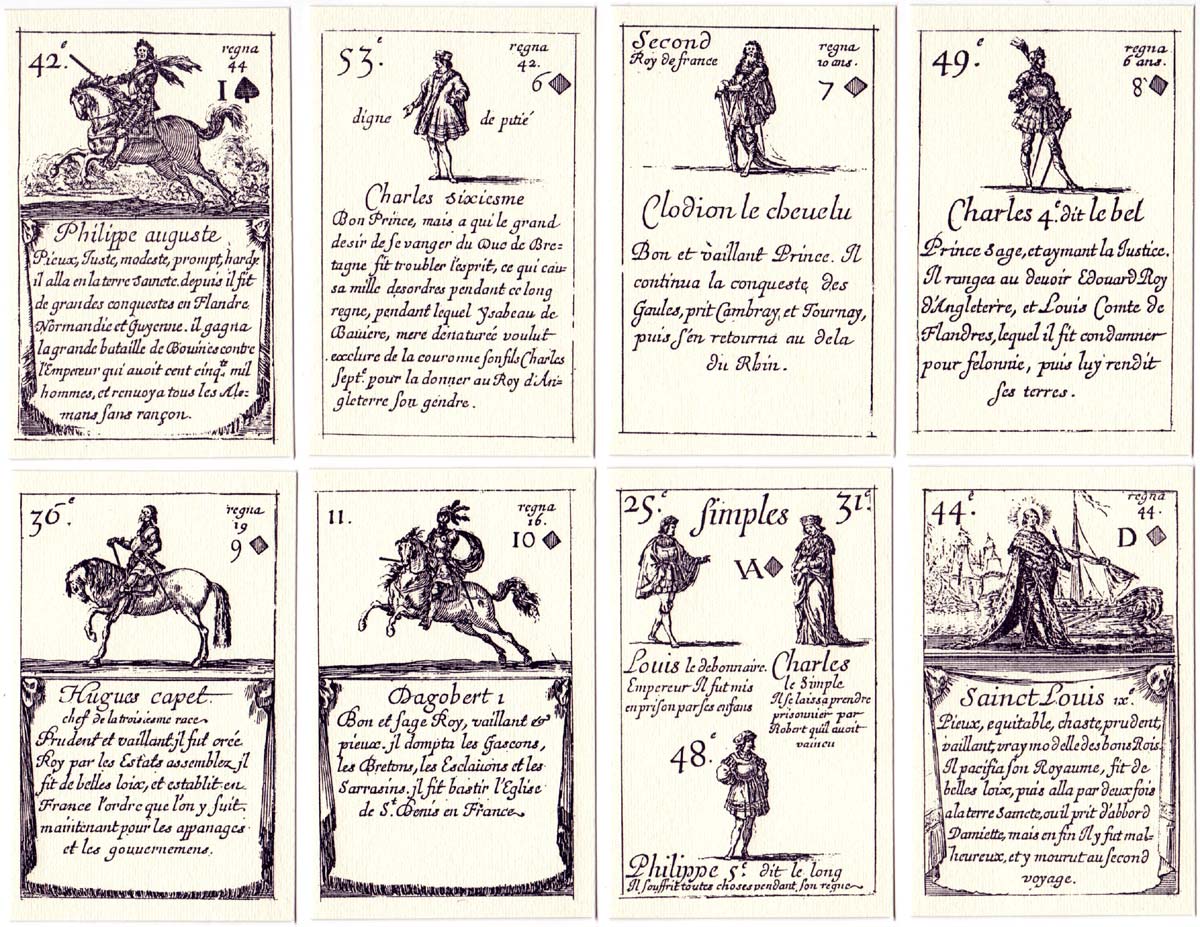 42.e
regna
44
1
Philippe auguste
Pieux, Iuste, modeste, prompt, hardy
il alla en la terre Saincte. depuis il fit
de grandes conquestes en Flandre
Normandie et Guyenne. il gagna
la grande bataille de Bouines contre
l'Empereur qui auoit cent cinq.te mil
hommes, et renuoya tous les Ale-
mans sans rançon.
53.e
regna
42.
6
digne de pitié
Charles sixiesme
Bon Prince, mais a qui le grand
desir de se vanger du Duc de Bre-
tagne fit troubler l'esprit, ce qui cau-
sa mille desordres pendant ce long
regne, pendant lequel Ysabeau de
Bauiere, mere dénaturée voulut
exclure de la couronne son fils Charles
sept.e pour la donner au Roy d'An-
gleterre son gendre.
Second
Roy de france
regna
10 ans.
7
Clodion le cheuelu
Bon et vaillant Prince. Il
continua la conqueste des
Gaules, prit Cambray, et Tournay,
puis s'en retourna au dela
du Rhin.
49.e
regna
6 ans.
8
Charles 4.e dit le bel
Prince sage, et aymant la Iustice.
Il rangea au deuoir Edouard Roy
d'Angleterre, et Louis Comte de
Flandres, lequel il fit condamner
pour felonnie, puis luy rendit
ses terres.
36.e
regna
19
9
Hugues capet.
chef de la troisiesme race
Prudent et vaillant. jl fut orcé
Roy par les Estats assemblez. jl
fit de belles loix, et establit en
France l'ordre que l'on y suit
maintenant pour les appanages
et les gouuernemens.
11.
regna
16.
10
Dagobert 1
Bon et sage Roy, vaillant &
pieux. jl dompta les Gascons,
les Bretons, les Esclauons et les
Sarrasins. jl fit bastir l'Eglise
de S.t Denis en France
25.e
simples
31.e
VA
Louis le debonnaire.
Empereur Il fut mis
en prison par ses enfans
Charles
le Simple
Il se laissa prendre
prisonnier par
Robert qu'il auoit
vaincu
48.e
Philippe 5.e dit le long
Il souffrit toutes choses pendant son regne
44.e
regna
44.
D
Sainct Louis ix.e
Pieux, equitable, chaste, prudent,
vaillant, vray modelle des bons Rois.
Il pacifia son Royaume, fit de
belles loix, puis alla par deux fois
a la terre Saincte, ou il prit d'abbord
Damiette, mais en fin Il y fut mal-
heureux, et y mourut au second
voyage.